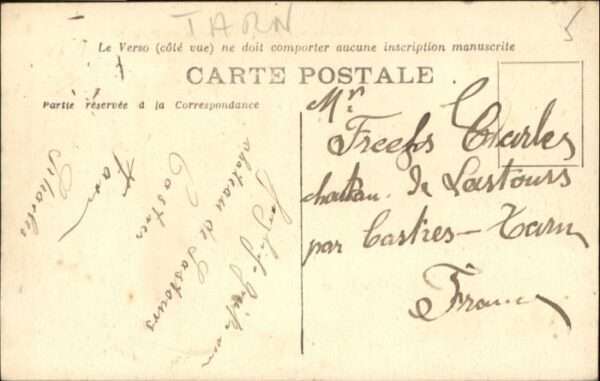 TARN
5
Le Verso (côté vue) ne doit comporter aucune inscription manuscrite
CARTE POSTALE
Partie réservée à la Correspondance
Mr
Charles
chateau de Lastours
par Castres - Tarn
France
chateau de Lastours
Castres
Tarn